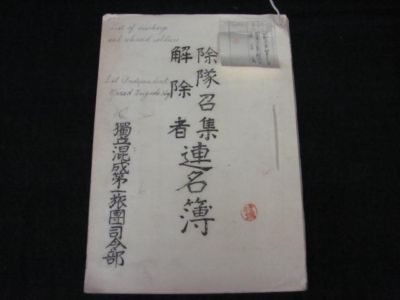 除隊召集
解除者
連名簿
獨立混成第一旅團司令部
List of discharge
and released soldiers
1st Independent
Mixed Brigade Hq